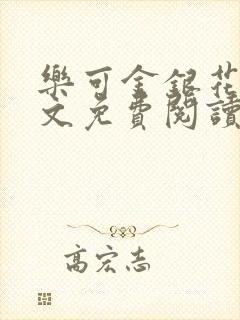 樂可金銀花
文免費閱讀
高宏志